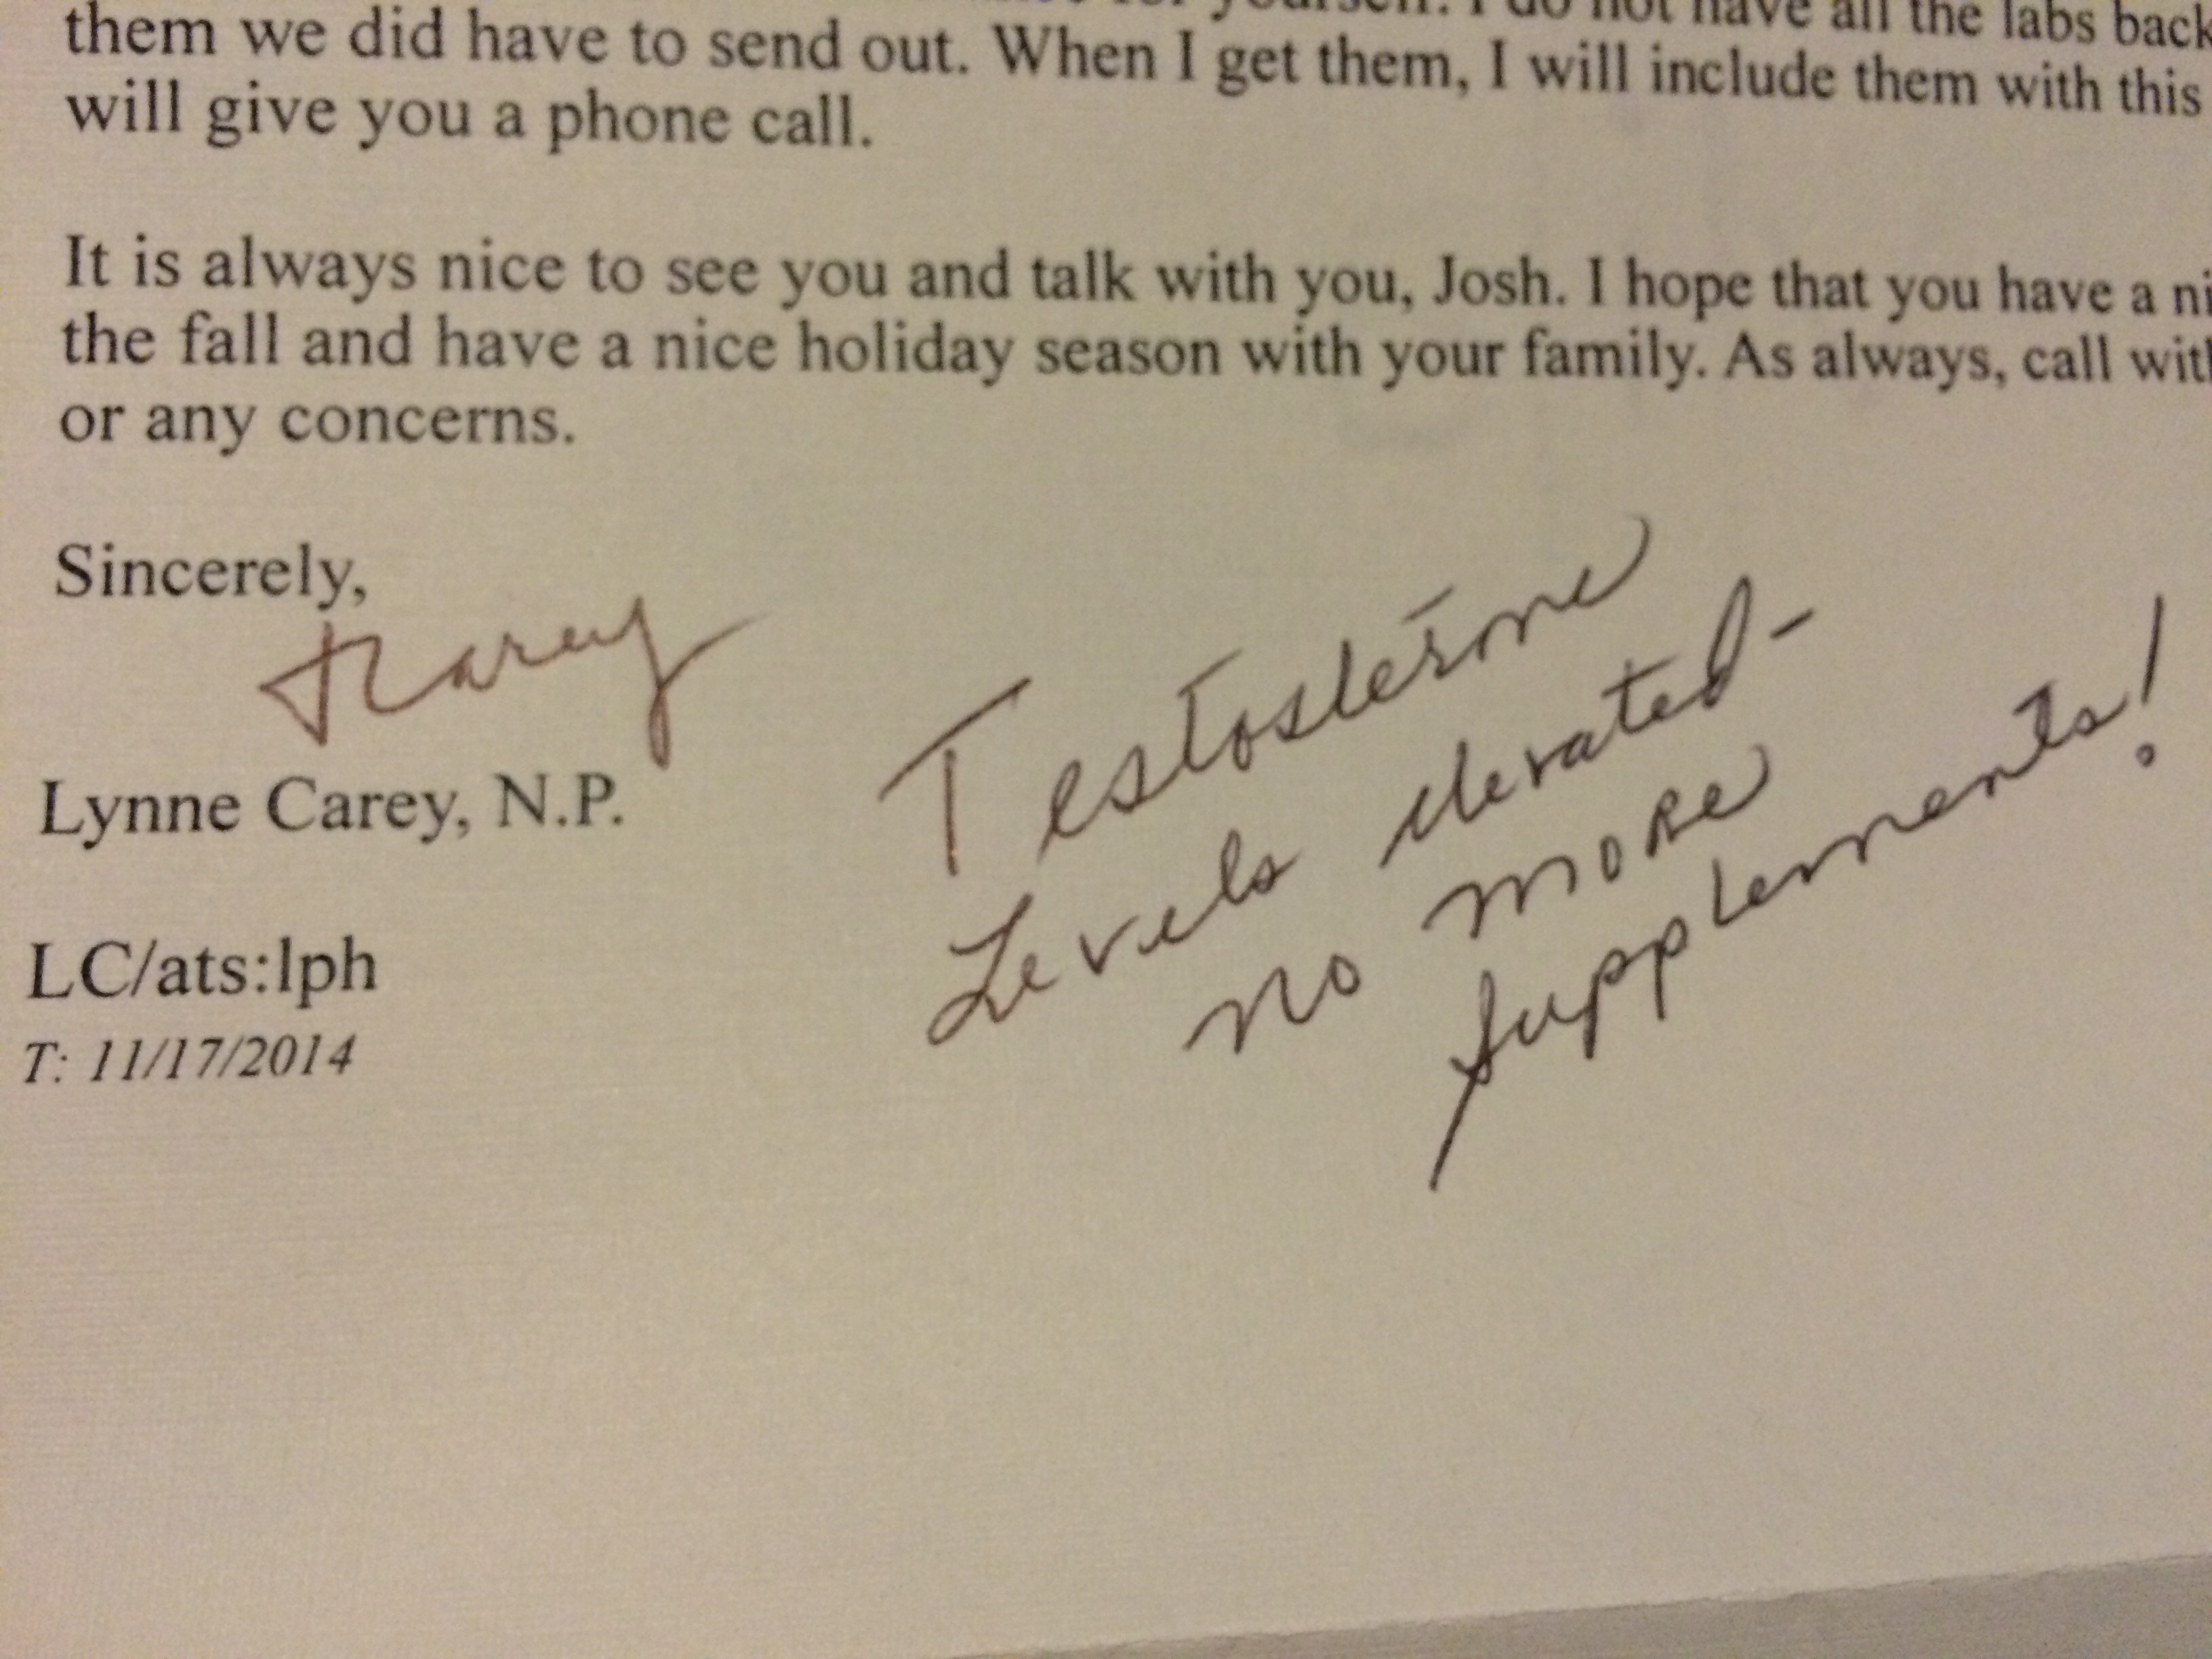 for yourself. I do not have all the labs back
them we did have to send out. When I get them, I will include them with this
will give you a phone call.
It is always nice to see you and talk with you, Josh. I hope that you have a ni
the fall and have a nice holiday season with your family. As always, call with
or any concerns.
Sincerely,
Carey
Lynne Carey, N.P.
LC/ats:lph
T: 11/17/2014
Testosterone
Levels elevated-
no more
supplements!